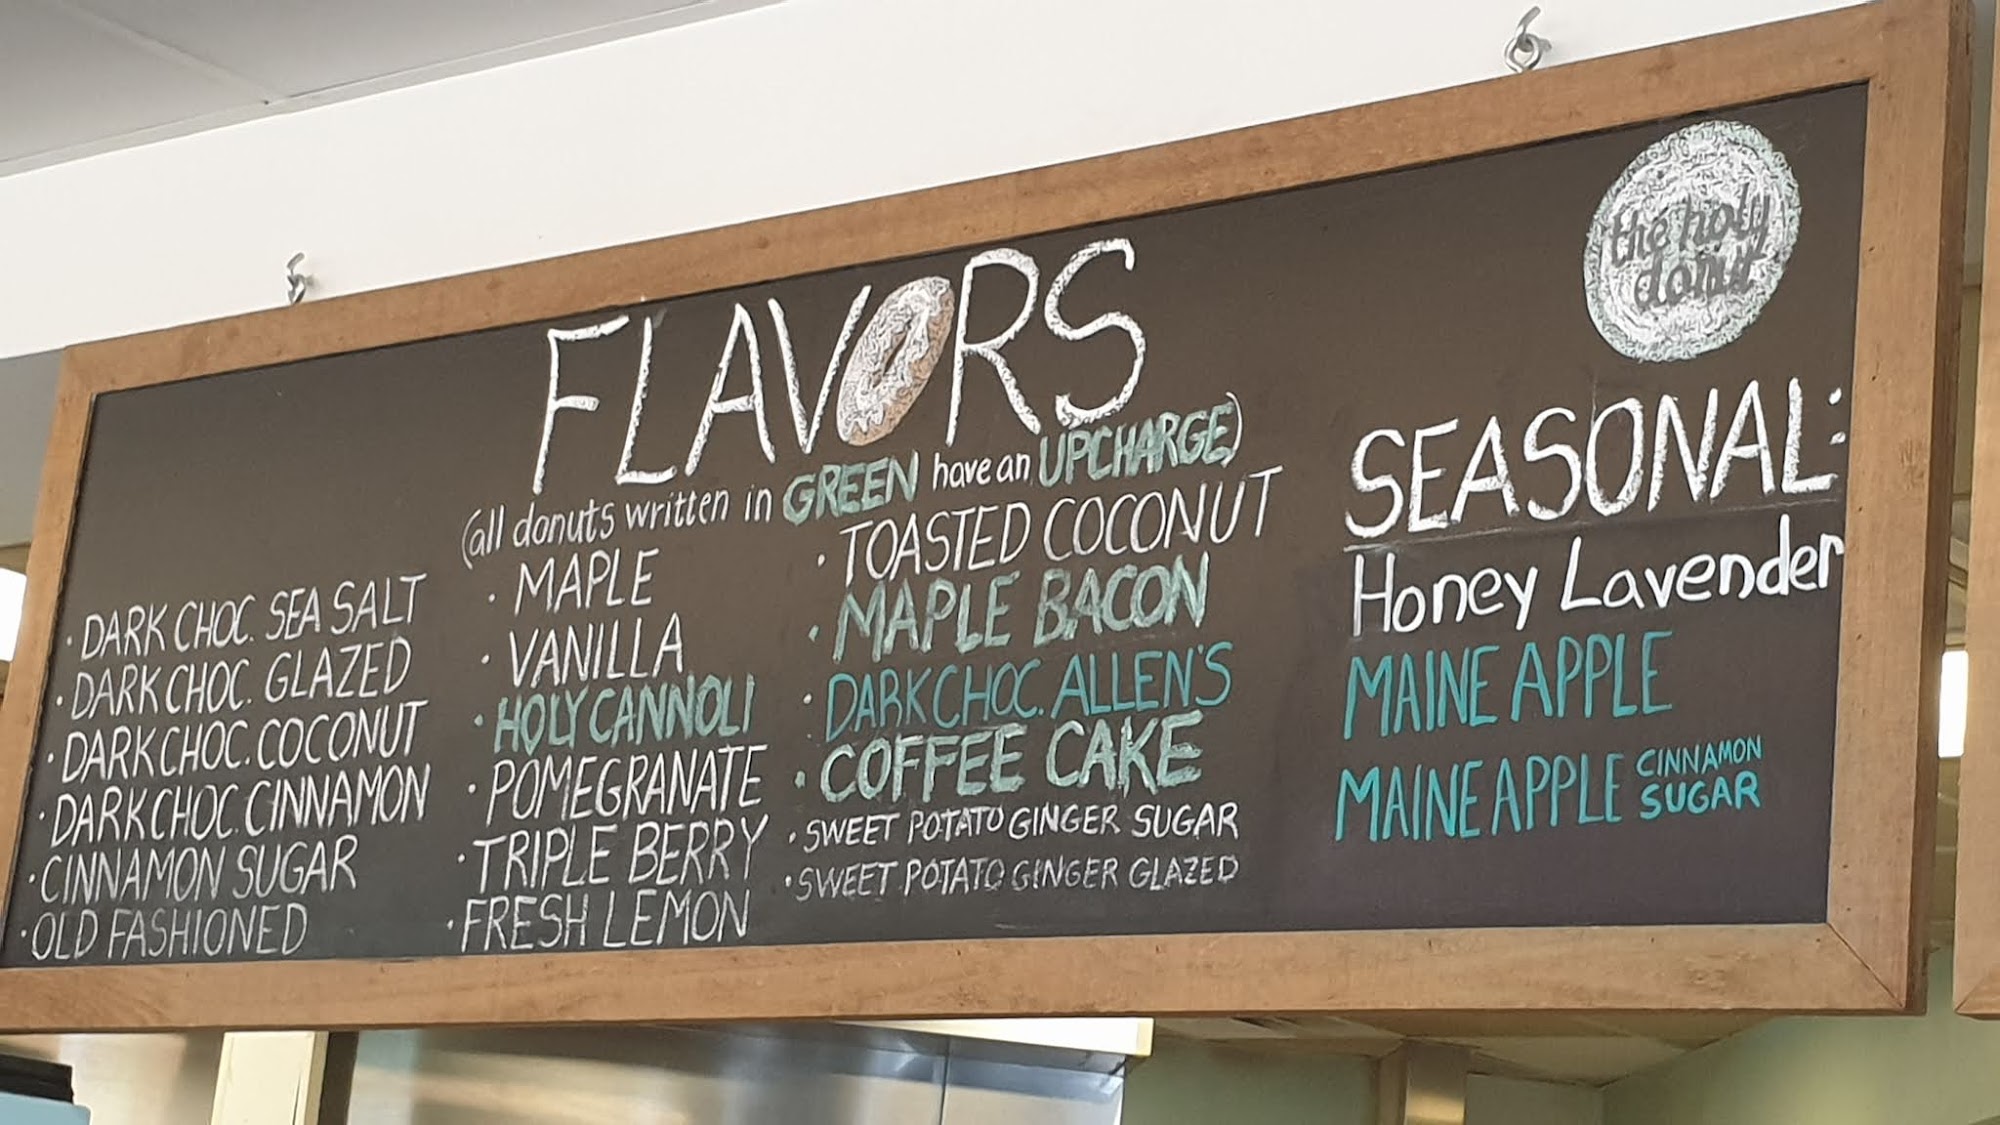 the holy
donut
FLAVORS
(all donuts written in GREEN have an UPCHARGE)
· DARK CHOC. SEA SALT
· DARK CHOC. GLAZED
· DARK CHOC. COCONUT
· DARK CHOC. CINNAMON
· CINNAMON SUGAR
· OLD FASHIONED
· MAPLE
· VANILLA
· HOLY CANNOLI
· POMEGRANATE
· TRIPLE BERRY
· FRESH LEMON
· TOASTED COCONUT
· MAPLE BACON
· DARK CHOC. ALLEN'S
· COFFEE CAKE
· SWEET POTATO GINGER SUGAR
· SWEET POTATO GINGER GLAZED
SEASONAL:
Honey Lavender
MAINE APPLE
MAINE APPLE CINNAMON SUGAR